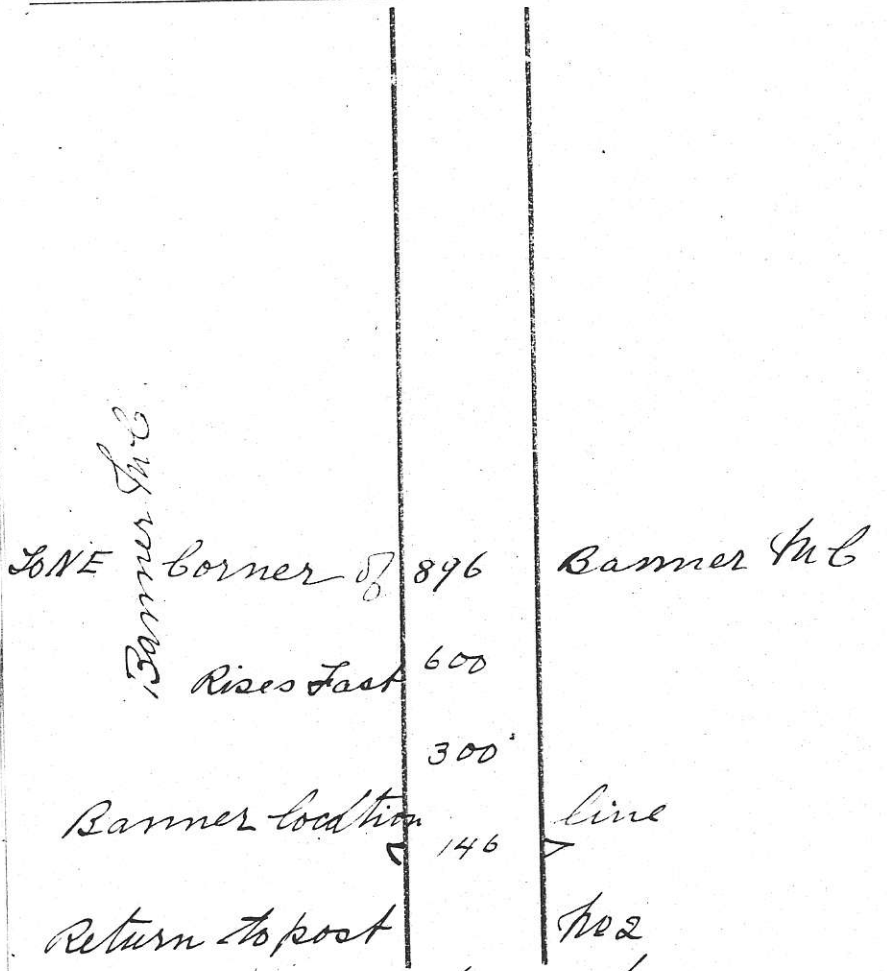 Banner M C
To NE Corner of 896 Banner M C
Rises Fast 600
300
Banner location 146 line
Return to post No 2